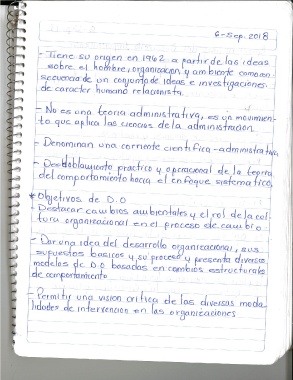 6-Sep. 2018
- Tiene su origen en 1962 a partir de las ideas
sobre el hombre, organizacion y ambiente como con
secuencia de un conjunto de ideas e investigaciones
de caracter humano relacionista.
- No es una teoria administrativa, es un movimien-
to que aplica las ciencias de la administracion
- Denominan una corriente cientifica-administrativa
- Desdoblamiento practico y operacional de la teoria
del comportamiento hacia el enfoque sistematico,
* Objetivos de D.O
Destacar cambios ambientales y el rol de la cul-
tura organizacional en el proceso de cambio.
- Dar una idea del desarrollo organizacional, sus
supuestos basicos y su proceso y presenta diversos
modelos de D.O basados en cambios estructurales
de comportamiento
- Permitir una vision critica de las diversas moda
lidades de intervencion en las organizaciones